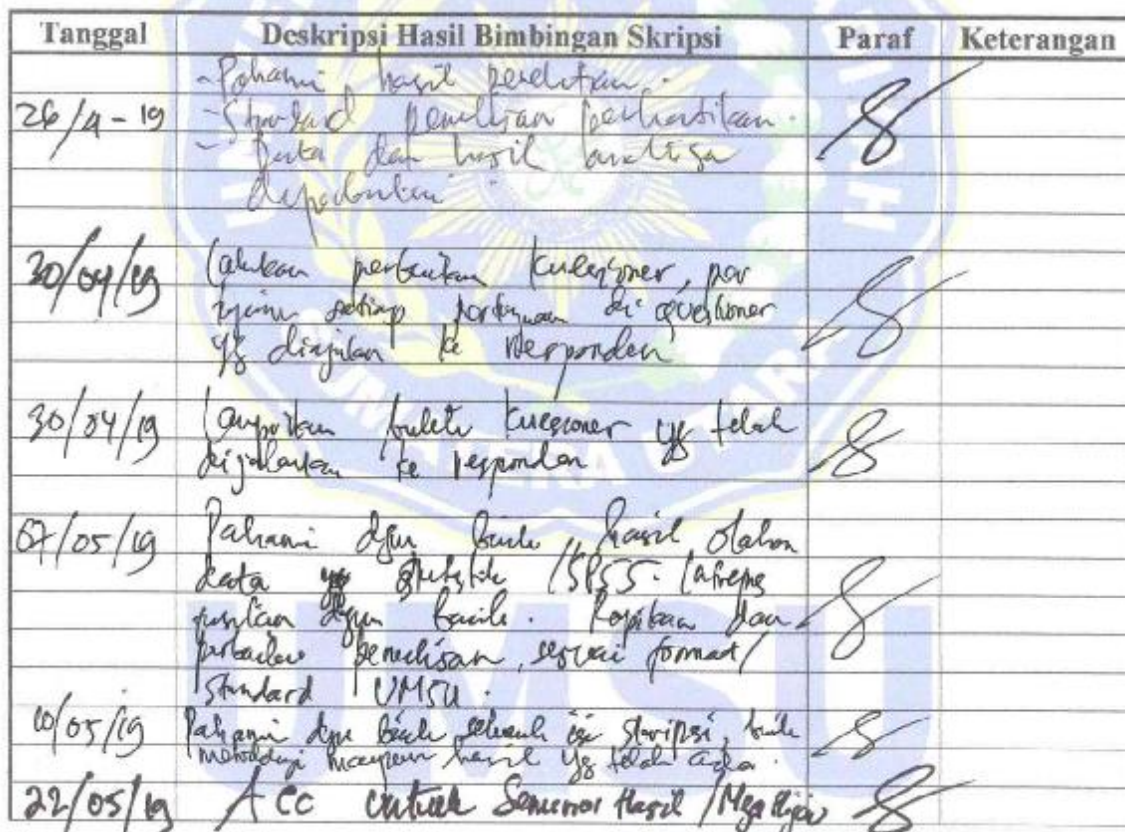 Tanggal Deskripsi Hasil Bimbingan Skripsi Paraf Keterangan
- Pahami hasil penelitian.
26/4-19 - Standard penulisan perhatikan.
- Data dan hasil analisa
30/04/19 Lakukan perbaikan kuesioner,
setiap pertanyaan di questioner
yg diajukan ke responden
30/04/19 Lampirkan bukti kuesioner yg telah
dijalankan ke responden
07/05/19 Pahami dgn baik, hasil olahan
data statistik /SPSS.
dgn baik. Rapikan dan
perbaiki penulisan, sesuai format/
standard UMSU.
10/05/19 Pahami dgn baik seluruh isi skripsi, baik
metodologi maupun hasil yg telah ada.
22/05/19 ACC untuk Seminar Hasil /Meja Hijau
UMSU